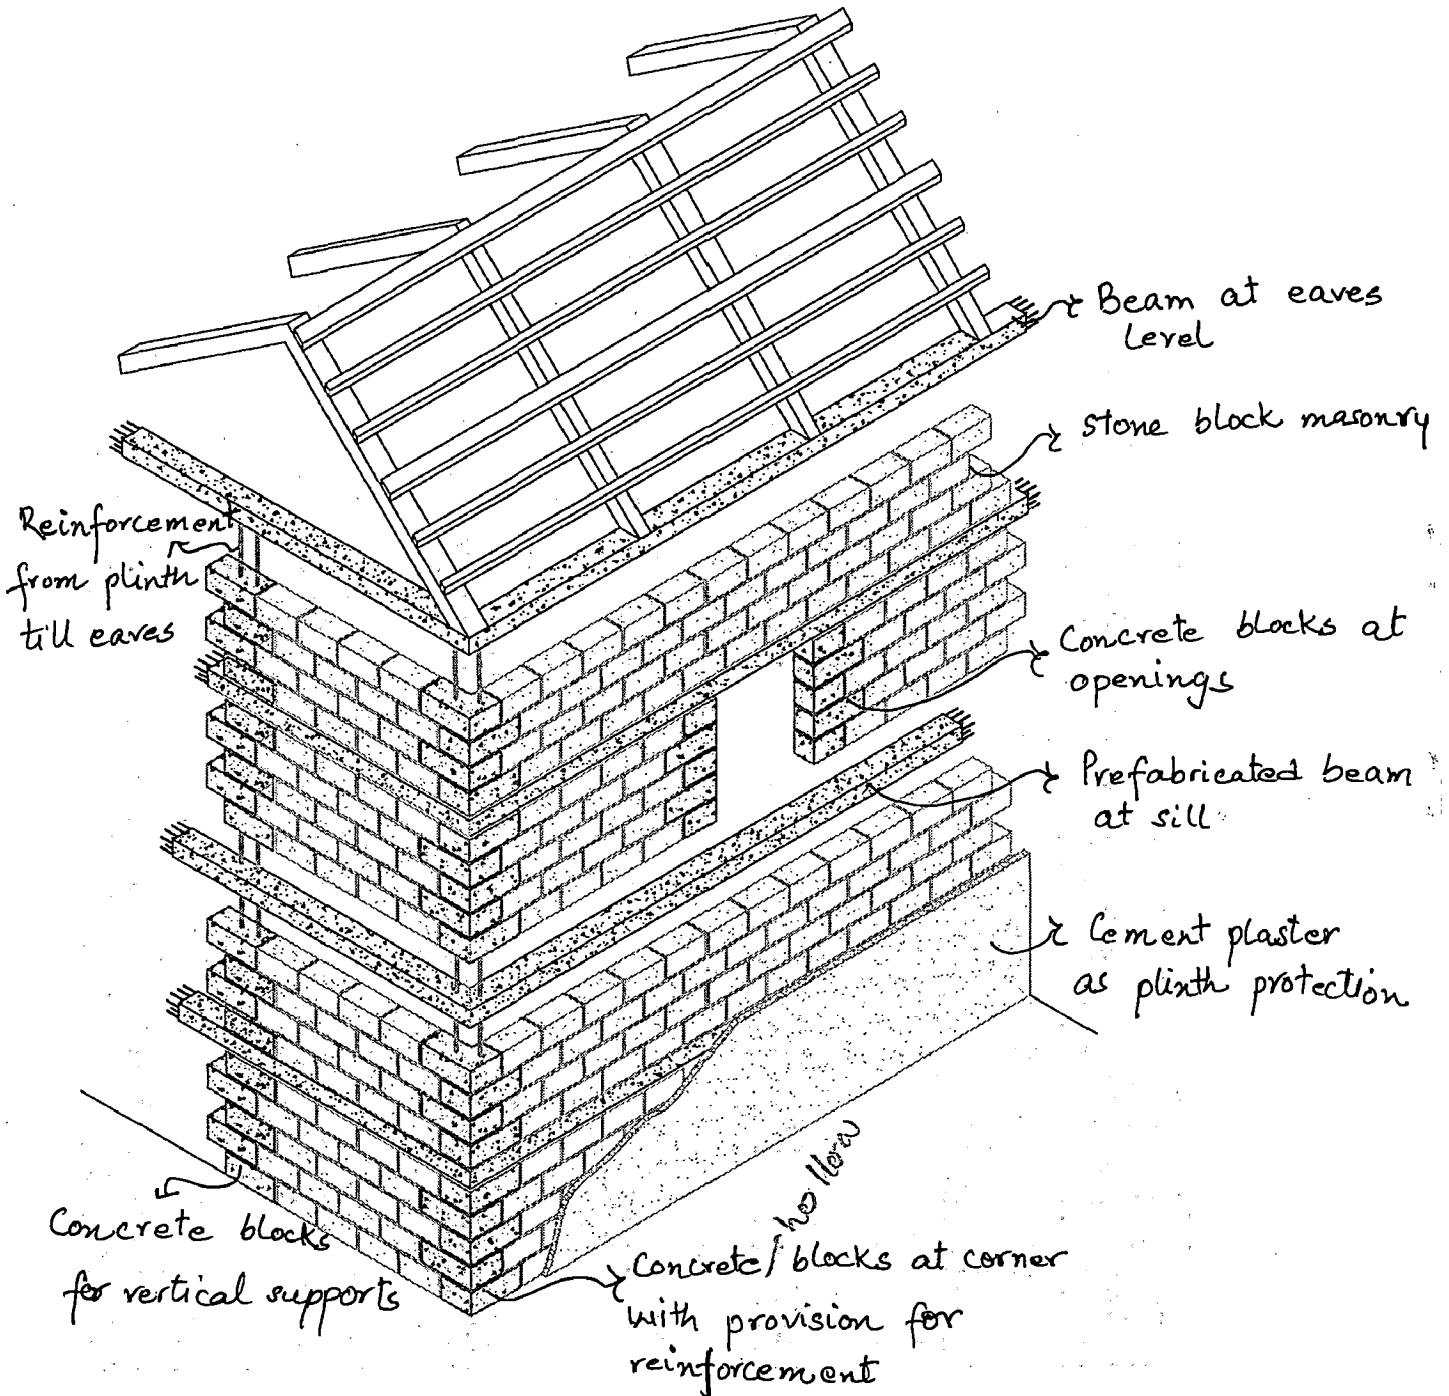 Beam at eaves
Level
stone block masonry
Reinforcement
from plinth
till eaves
Concrete blocks at
openings
Prefabricated beam
at sill
Cement plaster
as plinth protection
Concrete blocks
for vertical supports
Concrete/blocks at corner
with provision for
reinforcement